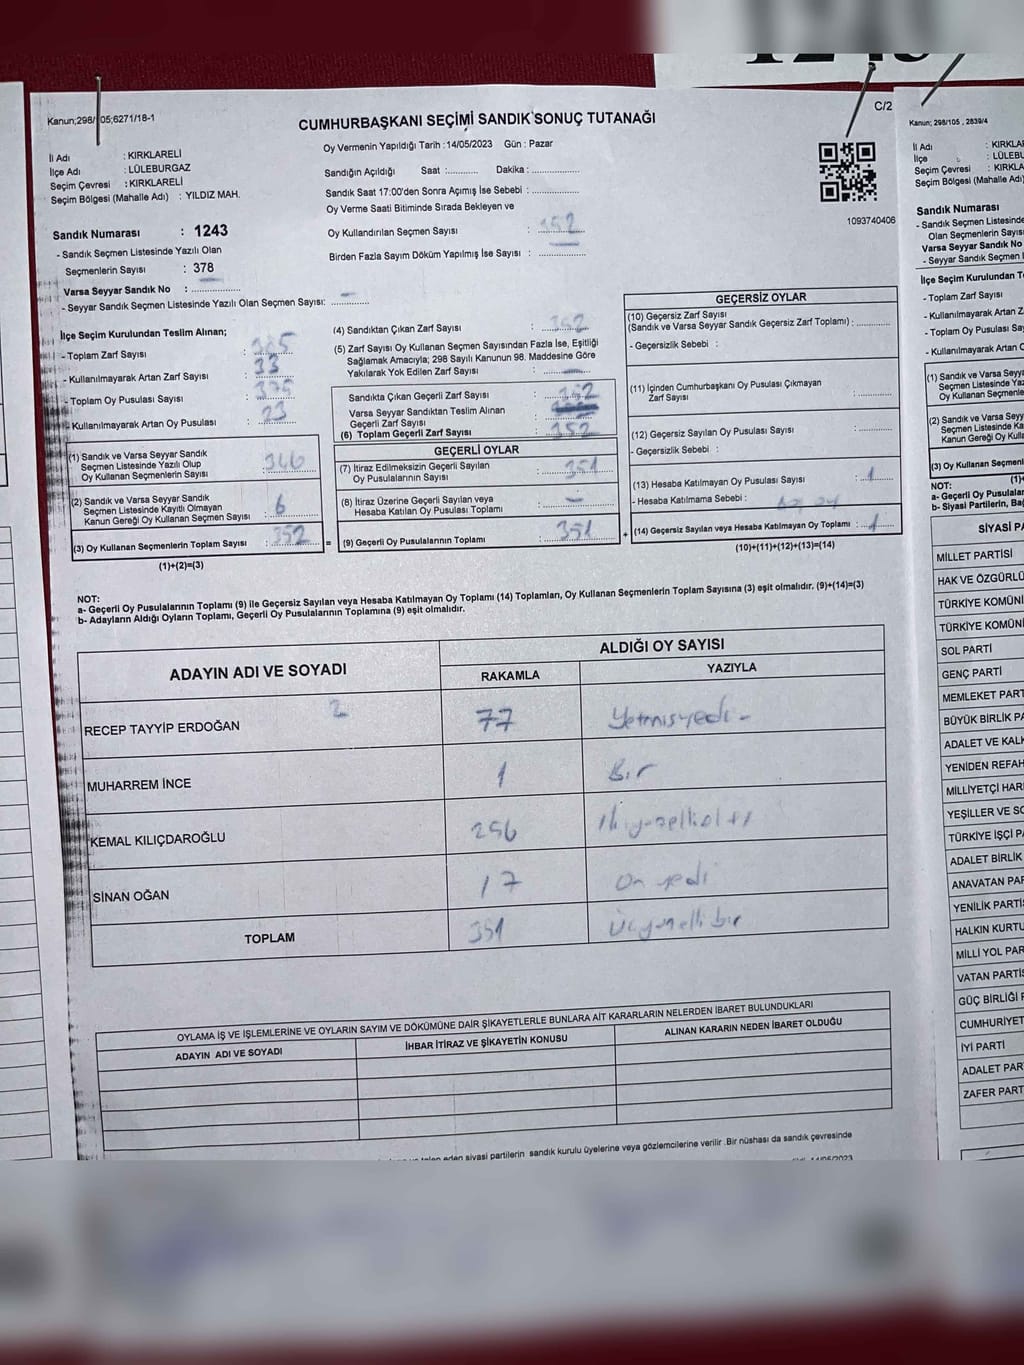 Kanun;298/105;6271/18-1
C/2
CUMHURBAŞKANI SEÇİMİ SANDIK SONUÇ TUTANAĞI
İl Adı : KIRKLARELİ
İlçe Adı : LÜLEBURGAZ
Seçim Çevresi : KIRKLARELİ
Seçim Bölgesi (Mahalle Adı) : YILDIZ MAH.
Sandık Numarası : 1243
- Sandık Seçmen Listesinde Yazılı Olan
Seçmenlerin Sayısı : 378
Varsa Seyyar Sandık No :
- Seyyar Sandık Seçmen Listesinde Yazılı Olan Seçmen Sayısı: –
Oy Vermenin Yapıldığı Tarih : 14/05/2023 Gün : Pazar
Sandığın Açıldığı Saat :........... Dakika :................
Sandık Saat 17:00'den Sonra Açımış İse Sebebi :................
Oy Verme Saati Bitiminde Sırada Bekleyen ve
Oy Kullandırılan Seçmen Sayısı : 352
Birden Fazla Sayım Döküm Yapılmış İse Sayısı : ................
1093740406
İlçe Seçim Kurulundan Teslim Alınan;
- Toplam Zarf Sayısı : 385
- Kullanılmayarak Artan Zarf Sayısı : 33
- Toplam Oy Pusulası Sayısı : 375
- Kullanılmayarak Artan Oy Pusulası : 23
(1) Sandık ve Varsa Seyyar Sandık
Seçmen Listesinde Yazılı Olup
Oy Kullanan Seçmenlerin Sayısı : 346
(2) Sandık ve Varsa Seyyar Sandık
Seçmen Listesinde Kayıtlı Olmayan
Kanun Gereği Oy Kullanan Seçmen Sayısı : 6
(3) Oy Kullanan Seçmenlerin Toplam Sayısı : 352 =
(1)+(2)=(3)
(4) Sandıktan Çıkan Zarf Sayısı : 352
(5) Zarf Sayısı Oy Kullanan Seçmen Sayısından Fazla İse, Eşitliği
Sağlamak Amacıyla; 298 Sayılı Kanunun 98. Maddesine Göre
Yakılarak Yok Edilen Zarf Sayısı : –
Sandıkta Çıkan Geçerli Zarf Sayısı : 352
Varsa Seyyar Sandıktan Teslim Alınan
Geçerli Zarf Sayısı :
(6) Toplam Geçerli Zarf Sayısı : 352
GEÇERLİ OYLAR
(7) İtiraz Edilmeksizin Geçerli Sayılan
Oy Pusulalarının Sayısı : 351
(8) İtiraz Üzerine Geçerli Sayılan veya
Hesaba Katılan Oy Pusulası Toplamı : –
(9) Geçerli Oy Pusulalarının Toplamı : 351 +
GEÇERSİZ OYLAR
(10) Geçersiz Zarf Sayısı
(Sandık ve Varsa Seyyar Sandık Geçersiz Zarf Toplamı) :............
- Geçersizlik Sebebi :
(11) İçinden Cumhurbaşkanı Oy Pusulası Çıkmayan
Zarf Sayısı :............
(12) Geçersiz Sayılan Oy Pusulası Sayısı :............
- Geçersizlik Sebebi :
(13) Hesaba Katılmayan Oy Pusulası Sayısı : 1
- Hesaba Katılmama Sebebi :
(14) Geçersiz Sayılan veya Hesaba Katılmayan Oy Toplamı : 1
(10)+(11)+(12)+(13)=(14)
NOT:
a- Geçerli Oy Pusulalarının Toplamı (9) ile Geçersiz Sayılan veya Hesaba Katılmayan Oy Toplamı (14) Toplamları, Oy Kullanan Seçmenlerin Toplam Sayısına (3) eşit olmalıdır. (9)+(14)=(3)
b- Adayların Aldığı Oyların Toplamı, Geçerli Oy Pusulalarının Toplamına (9) eşit olmalıdır.
ADAYIN ADI VE SOYADI
ALDIĞI OY SAYISI
RAKAMLA YAZIYLA
RECEP TAYYİP ERDOĞAN 2 77 Yetmişyedi-
MUHARREM İNCE 1 Bir
KEMAL KILIÇDAROĞLU 256 İkiyüzellialtı
SİNAN OĞAN 17 On yedi
TOPLAM 351 Üçyüzellibir
OYLAMA İŞ VE İŞLEMLERİNE VE OYLARIN SAYIM VE DÖKÜMÜNE DAİR ŞİKAYETLERLE BUNLARA AİT KARARLARIN NELERDEN İBARET BULUNDUKLARI
ADAYIN ADI VE SOYADI
İHBAR İTİRAZ VE ŞİKAYETİN KONUSU
ALINAN KARARIN NEDEN İBARET OLDUĞU
eden siyasi partilerin sandık kurulu üyelerine veya gözlemcilerine verilir .Bir nüshası da sandık çevresinde
Kanun; 298/105 , 2839/4
İl Adı : KIRKLAR
İlçe : LÜLEBU
Seçim Çevresi : KIRKLA
Seçim Bölgesi (Mahalle Adı)
Sandık Numarası
- Sandık Seçmen Listesinde
Olan Seçmenlerin Sayıs
Varsa Seyyar Sandık No
- Seyyar Sandık Seçmen L
İlçe Seçim Kurulundan T
- Toplam Zarf Sayısı
- Kullanılmayarak Artan
- Toplam Oy Pusulası Sa
- Kullanılmayarak Artan C
(1) Sandık ve Varsa Seyya
Seçmen Listesinde Yaz
Oy Kullanan Seçmenler
(2) Sandık ve Varsa Seyya
Seçmen Listesinde Ka
Kanun Gereği Oy Kullan
(3) Oy Kullanan Seçmenl
NOT: (1)+
a- Geçerli Oy Pusulalar
b- Siyasi Partilerin, Bağ
SİYASİ PA
MİLLET PARTİSİ
HAK VE ÖZGÜRLÜ
TÜRKİYE KOMÜNİ
TÜRKİYE KOMÜNİ
SOL PARTİ
GENÇ PARTİ
MEMLEKET PART
BÜYÜK BİRLİK PA
ADALET VE KALK
YENİDEN REFAH
MİLLİYETÇİ HAR
YEŞİLLER VE SO
TÜRKİYE İŞÇİ PA
ADALET BİRLİK
ANAVATAN PAR
YENİLİK PARTİS
HALKIN KURTU
MİLLİ YOL PAR
VATAN PARTİS
GÜÇ BİRLİĞİ P
CUMHURİYET
İYİ PARTİ
ADALET PAR
ZAFER PART